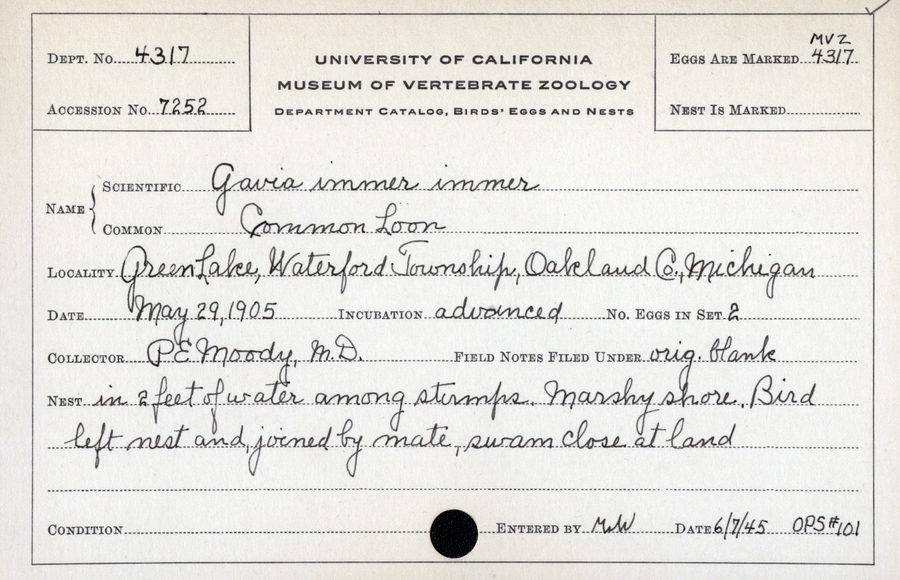 DEPT. No. 4317
ACCESSION No. 7252
UNIVERSITY OF CALIFORNIA
MUSEUM OF VERTEBRATE ZOOLOGY
DEPARTMENT CATALOG, BIRDS' EGGS AND NESTS
MVZ
EGGS ARE MARKED 4317
NEST IS MARKED
NAME
SCIENTIFIC Gavia immer immer
COMMON Common Loon
LOCALITY Green Lake, Waterford Township, Oakland Co., Michigan
DATE May 29, 1905 INCUBATION advanced No. EGGS IN SET 2
COLLECTOR PE Moody, M.D. FIELD NOTES FILED UNDER orig. blank
NEST in 2 feet of water among stumps. Marshy shore. Bird
left nest and, joined by mate, swam close at land
CONDITION ENTERED BY MW DATE 6/7/45 OPS#101